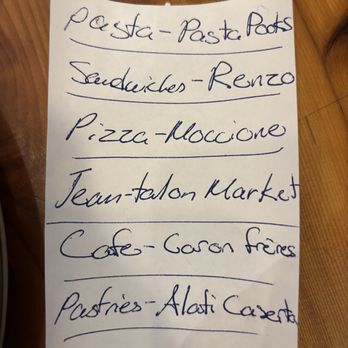 Pasta-Pasta Pooks
Sandwiches-Renzo
Pizza-Moccione
Jean-talon Market
Cafe-Caron frères
Pastries-Alati Caserta